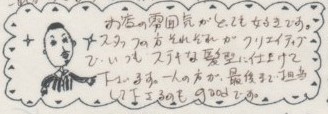 お店の雰囲気がとても好きです。
スタッフの方それぞれがクリエイティブ
で、いつもステキな髪型に仕上げて
下さいます。一人の方が、最後まで担当
して下さるのもgoodです。